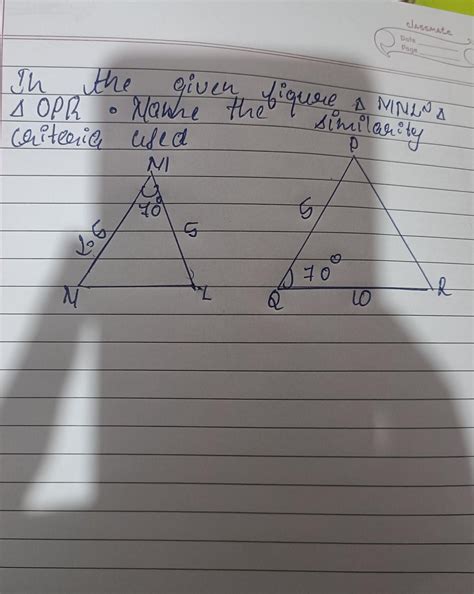 classmate
Date
Page
In the given figure Δ MNL ~ Δ
Δ OPR . Name the similarity
criteria used
M P
70° 5 5
70°
M L Q 10 R